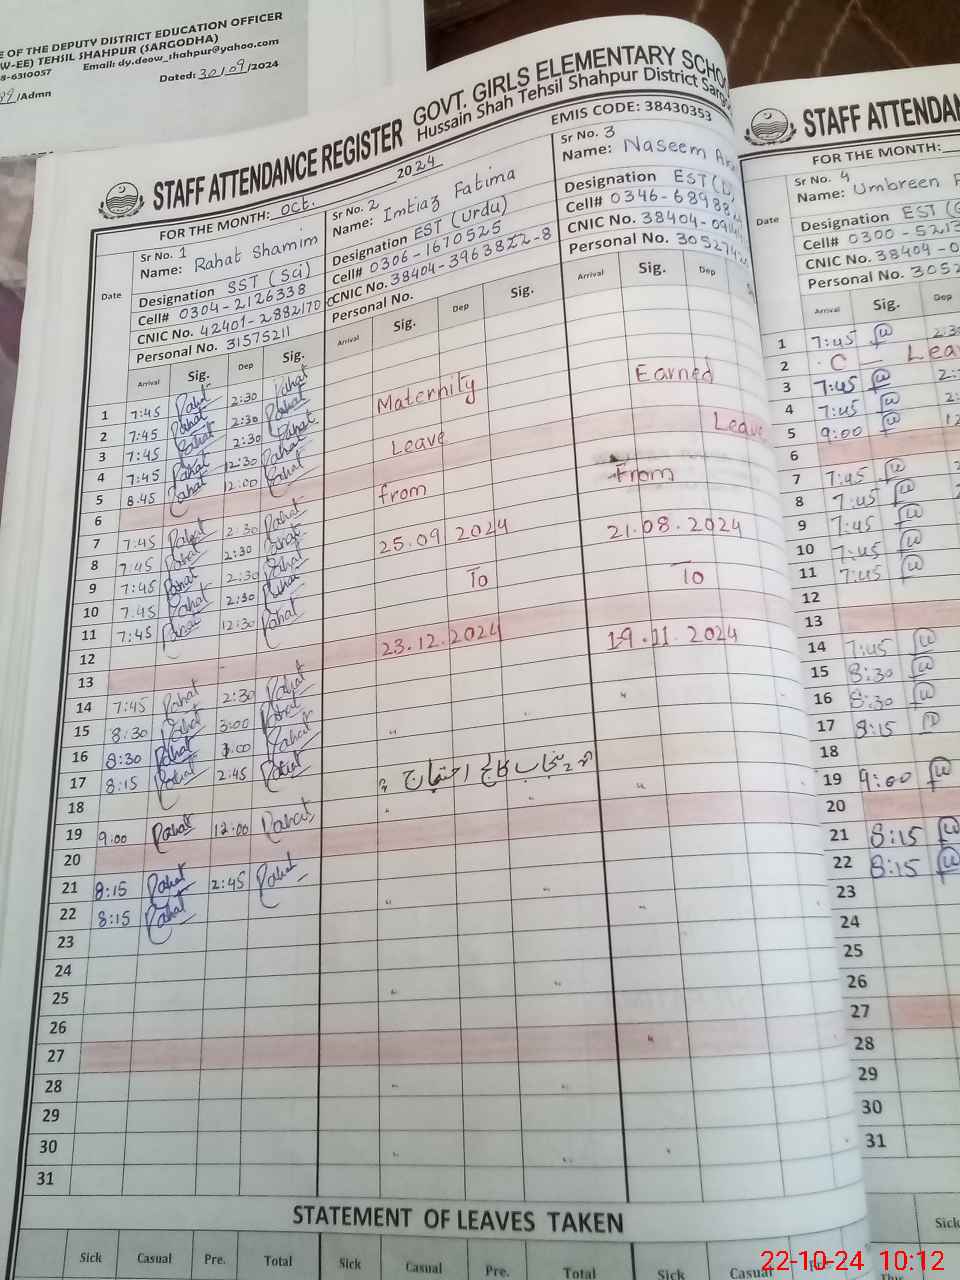 E OF THE DEPUTY DISTRICT EDUCATION OFFICER
W-EE) TEHSIL SHAHPUR (SARGODHA)
8-6310057 Email: dy.deow_shahpur@yahoo.com
/Admn Dated: 30/09/2024
STAFF ATTENDANCE REGISTER GOVT. GIRLS ELEMENTARY SCHO
Hussain Shah Tehsil Shahpur District Sarg
EMIS CODE: 38430353
FOR THE MONTH: Oct. 2024
Date
Sr No. 1
Name: Rahat Shamim
Designation SST (Sci)
Cell# 0304-2126338
CNIC No. 42401-2882170-0
Personal No. 31575211
Arrival Sig. Dep Sig.
Sr No. 2
Name: Imtiaz Fatima
Designation EST (Urdu)
Cell# 0306-1670525
CNIC No. 38404-3963822-8
Personal No.
Arrival Sig. Dep Sig.
Sr No. 3
Name: Naseem
Designation EST
Cell# 0346-6898
CNIC No. 38404-09
Personal No. 305274
Arrival Sig. Dep
1 7:45 Rahat 2:30 Rahat
2 7:45 Rahat 2:30 Rahat
3 7:45 Rahat 2:30 Rahat
4 7:45 Rahat 12:30 Rahat
5 8:45 Rahat 12:00 Rahat
6
7 7:45 Rahat 2:30 Rahat
8 7:45 Rahat 2:30 Rahat
9 7:45 Rahat 2:30 Rahat
10 7:45 Rahat 2:30 Rahat
11 7:45 Rahat 12:30 Rahat
12
13
14 7:45 Rahat 2:30 Rahat
15 8:30 Rahat 3:00 Rahat
16 8:30 Rahat 3:00 Rahat
17 8:15 Rahat 2:45 Rahat
18
19 9:00 Rahat 12:00 Rahat
20
21 8:15 Rahat 2:45 Rahat
22 8:15 Rahat
23
24
25
26
27
28
29
30
31
Maternity
Leave
from
25.09 2024
To
23.12.2024
Earned
Leave
From
21.08.2024
To
19.11.2024
پنجاب کالج احتجاج
STATEMENT OF LEAVES TAKEN
Sick Casual Pre. Total Sick Casual Pre. Total Sick Casual
STAFF ATTENDAN
FOR THE MONTH:
Date
Sr No. 4
Name: Umbreen
Designation EST
Cell# 0300-521
CNIC No. 38404-0
Personal No. 3052
Arrival Sig. Dep
1 7:45 2:30
2 C Lea
3 7:45 2:
4 7:45 2:
5 9:00 12
6
7 7:45
8 7:45
9 7:45
10 7:45
11 7:45
12
13
14 7:45
15 8:30
16 8:30
17 8:15
18
19 9:00
20
21 8:15
22 8:15
23
24
25
26
27
28
29
30
31
Sick
22-10-24 10:12